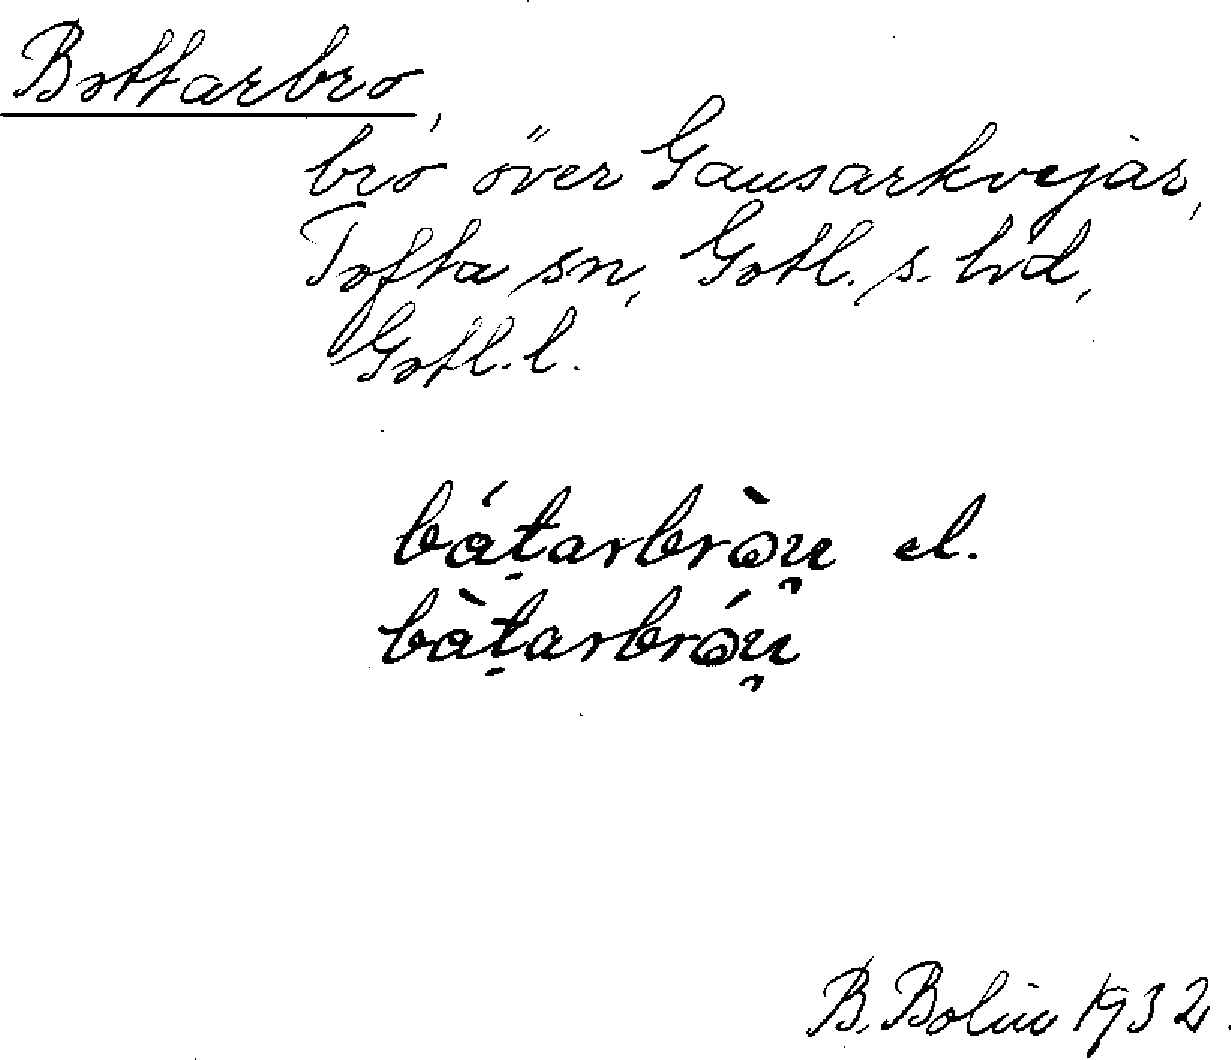 Bottarbro,
bro över Gausarkvejar,
Tofta sn, Gotl. s. hd,
Gotl. l.
bátarbròu̯ el.
bàtarbróu̯
B. Bolin 1932.